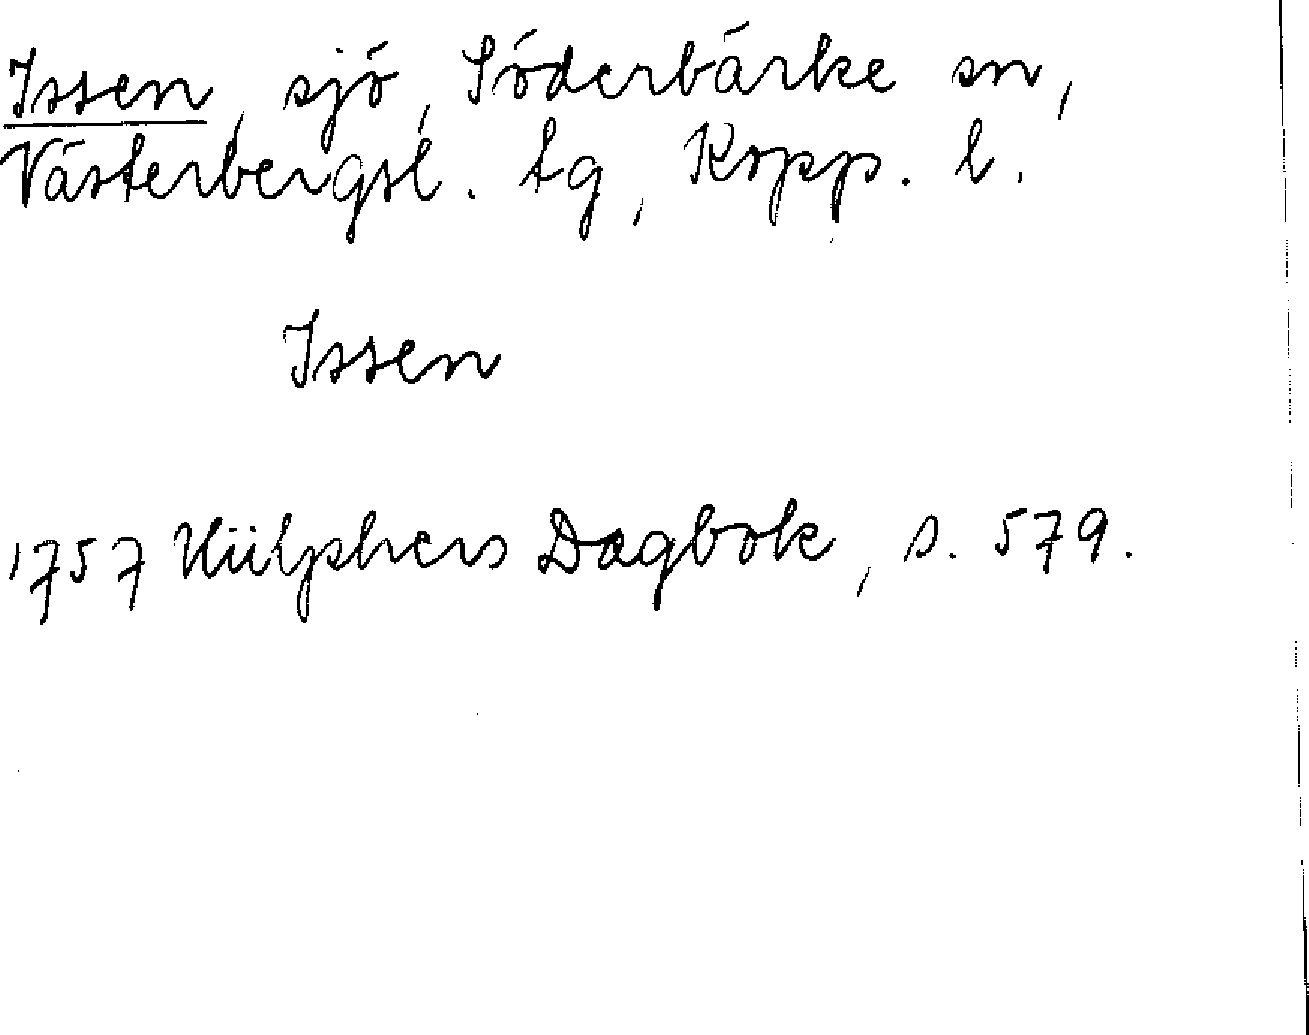 Issen, sjö, Söderbärke sn,
Västerbergsl. tg, Kopp. l.
Issen
1757 Hülphers Dagbok, s. 579.